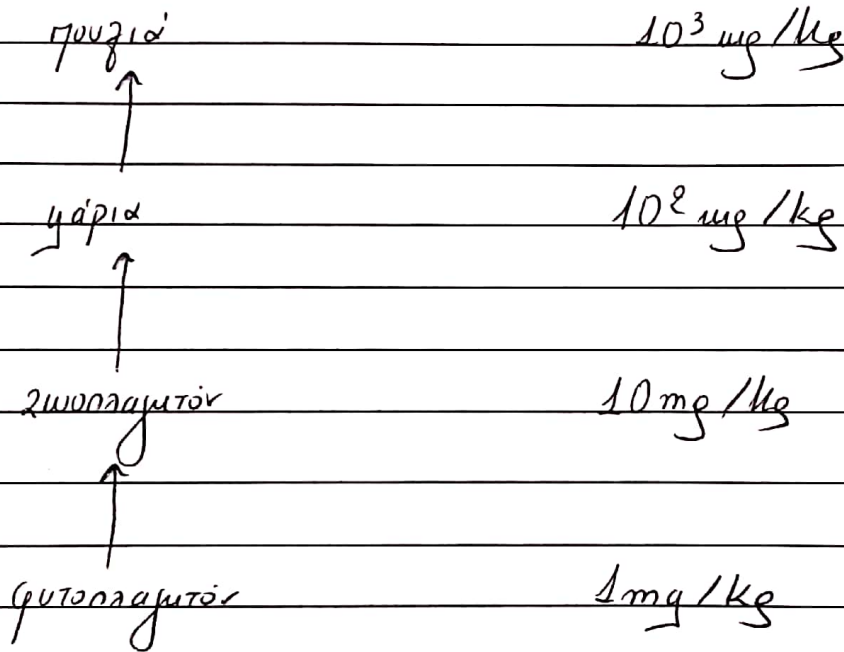 πουλιά 10³ mg/kg
ψάρια 10² mg/kg
ζωοπλαγκτόν 10 mg/kg
φυτοπλαγκτόν 1 mg/kg